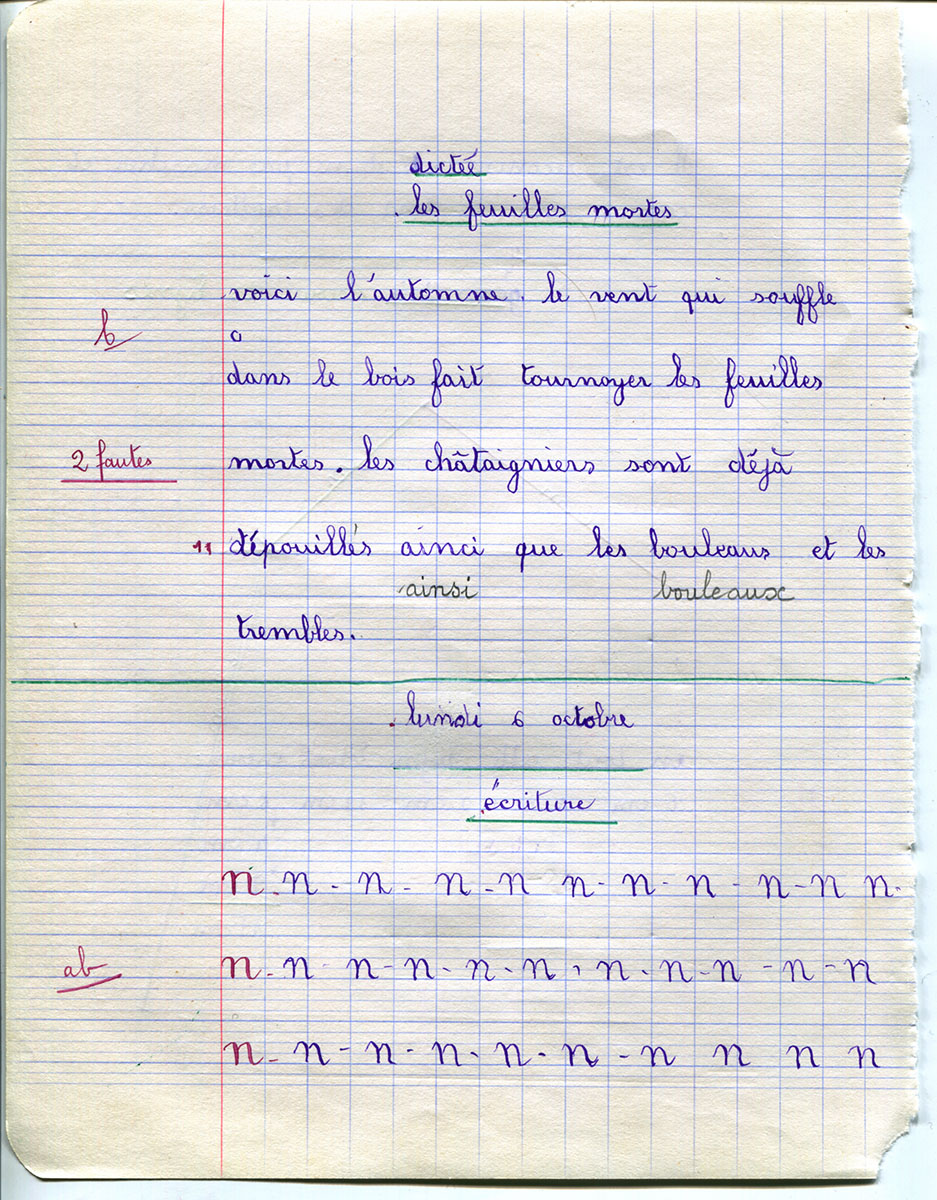 dicteé
les feuilles mortes
voici l'automne. le vent qui souffle
b
o
dans le bois fait tournoyer les feuilles
2 fautes mortes. les châtaigniers sont déjà
11 dépouillés ainci que les bouleaus et les
ainsi bouleaux
trembles.
lundi 6 octobre
écriture
n. n - n - n - n n - n - n - n - n n.
ab n - n - n - n - n - n - n - n - n - n - n
n - n - n - n - n - n - n n n n